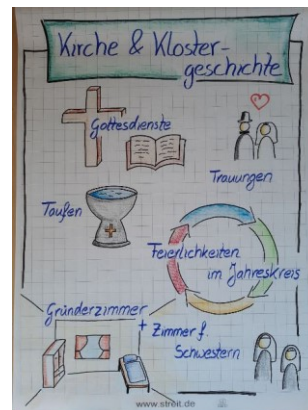 Kirche & Kloster-
geschichte
Gottesdienste
Trauungen
Taufen
Feierlichkeiten
im Jahreskreis
Gründerzimmer
+ Zimmer f.
Schwestern
www.streit.de